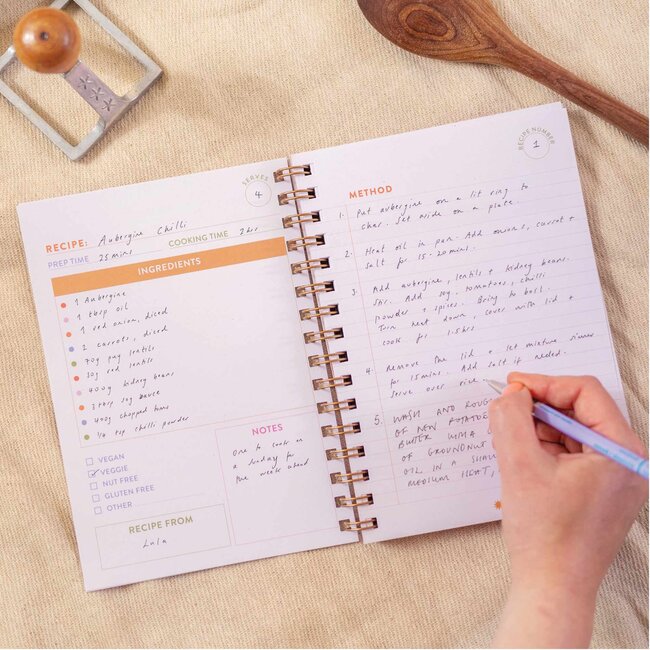 SERVES
4
RECIPE: Aubergine Chilli
PREP TIME 25 mins COOKING TIME 2hrs
INGREDIENTS
1 Aubergine
1 tbsp oil
1 red onion, diced
2 carrots, diced
70g puy lentils
30g red lentils
400g kidney beans
3 tbsp soy sauce
400g chopped toms
1/4 tsp chilli powder
VEGAN
VEGGIE
NUT FREE
GLUTEN FREE
OTHER
NOTES
One to cook on
a Sunday for
the week ahead
RECIPE FROM
Lula
RECIPE NUMBER
1
METHOD
1. Put aubergine on a lit ring to
char. Set aside on a plate.
2. Heat oil in pan. Add onions, carrot +
salt for 15-20mins.
3. Add aubergine, lentils + kidney beans.
Stir. Add soy, tomatoes, chilli
powder + spices. Bring to boil.
Turn heat down, cover with lid +
cook for 1.5hrs
4. Remove the lid + set mixture simmer
for 15mins. Add salt if needed.
Serve over rice
5. WASH AND ROUG
OF NEW POTATOE
BUTTER WITH A
OF GROUNDNUT
OIL IN A SHAL
MEDIUM HEAT,